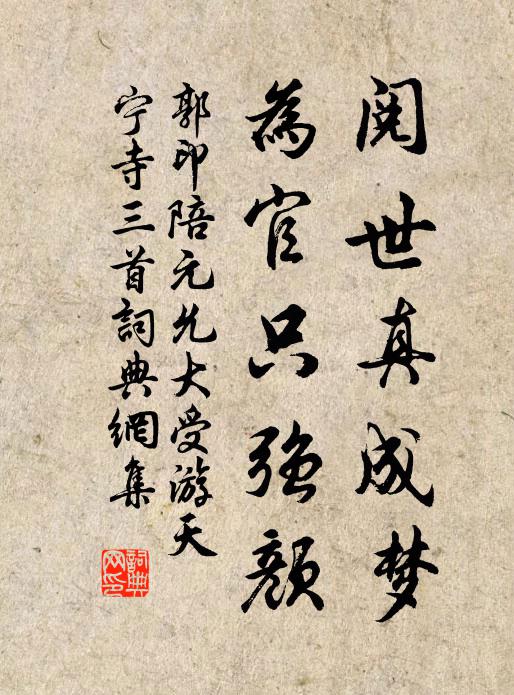 阅世真成梦
為官只強顔
郭印陪元允大受游天
宁寺三首詞典網集
詞典网印